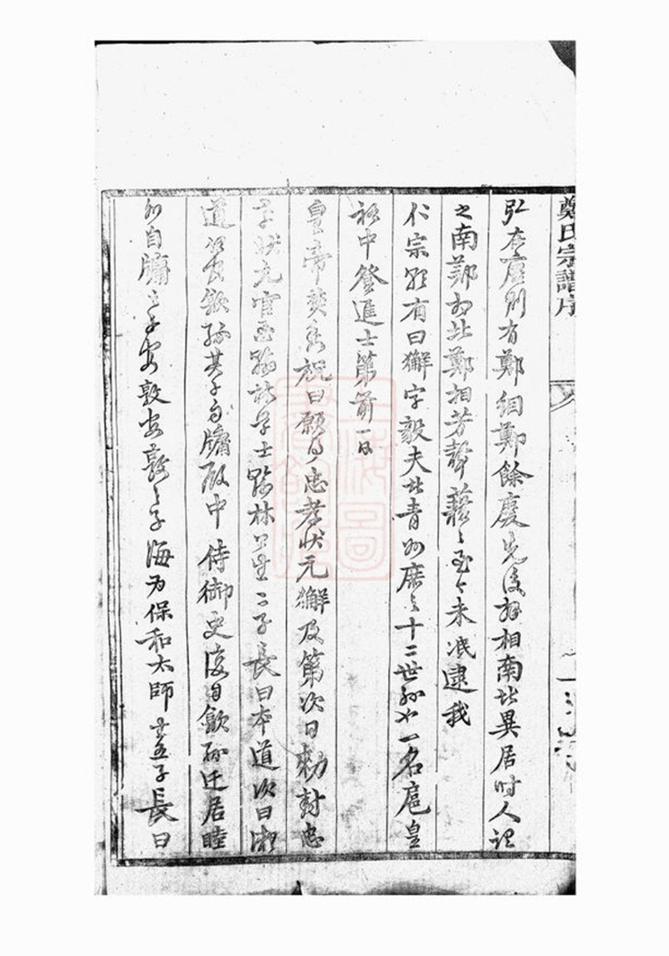 鄭氏宗譜序
弘在唐則有鄭絪鄭餘慶先後拜相南北異居時人語
之南鄭相北鄭相芳聲藉々至今未泯逮我
仁宗朝有曰獬字毅夫北青州房之十二世孫也一名扈皇
祐中登進士第前一日
皇帝焚香祝曰願得忠孝狀元獬及第次日勅封忠
孝狀元官至翰林學士翰林生二子長曰本道次曰
道歙孫其子曰牗殿中侍御史後自歙孫迁居睦
州自牗之子安敦安敦之子海为保和太師生五子長曰